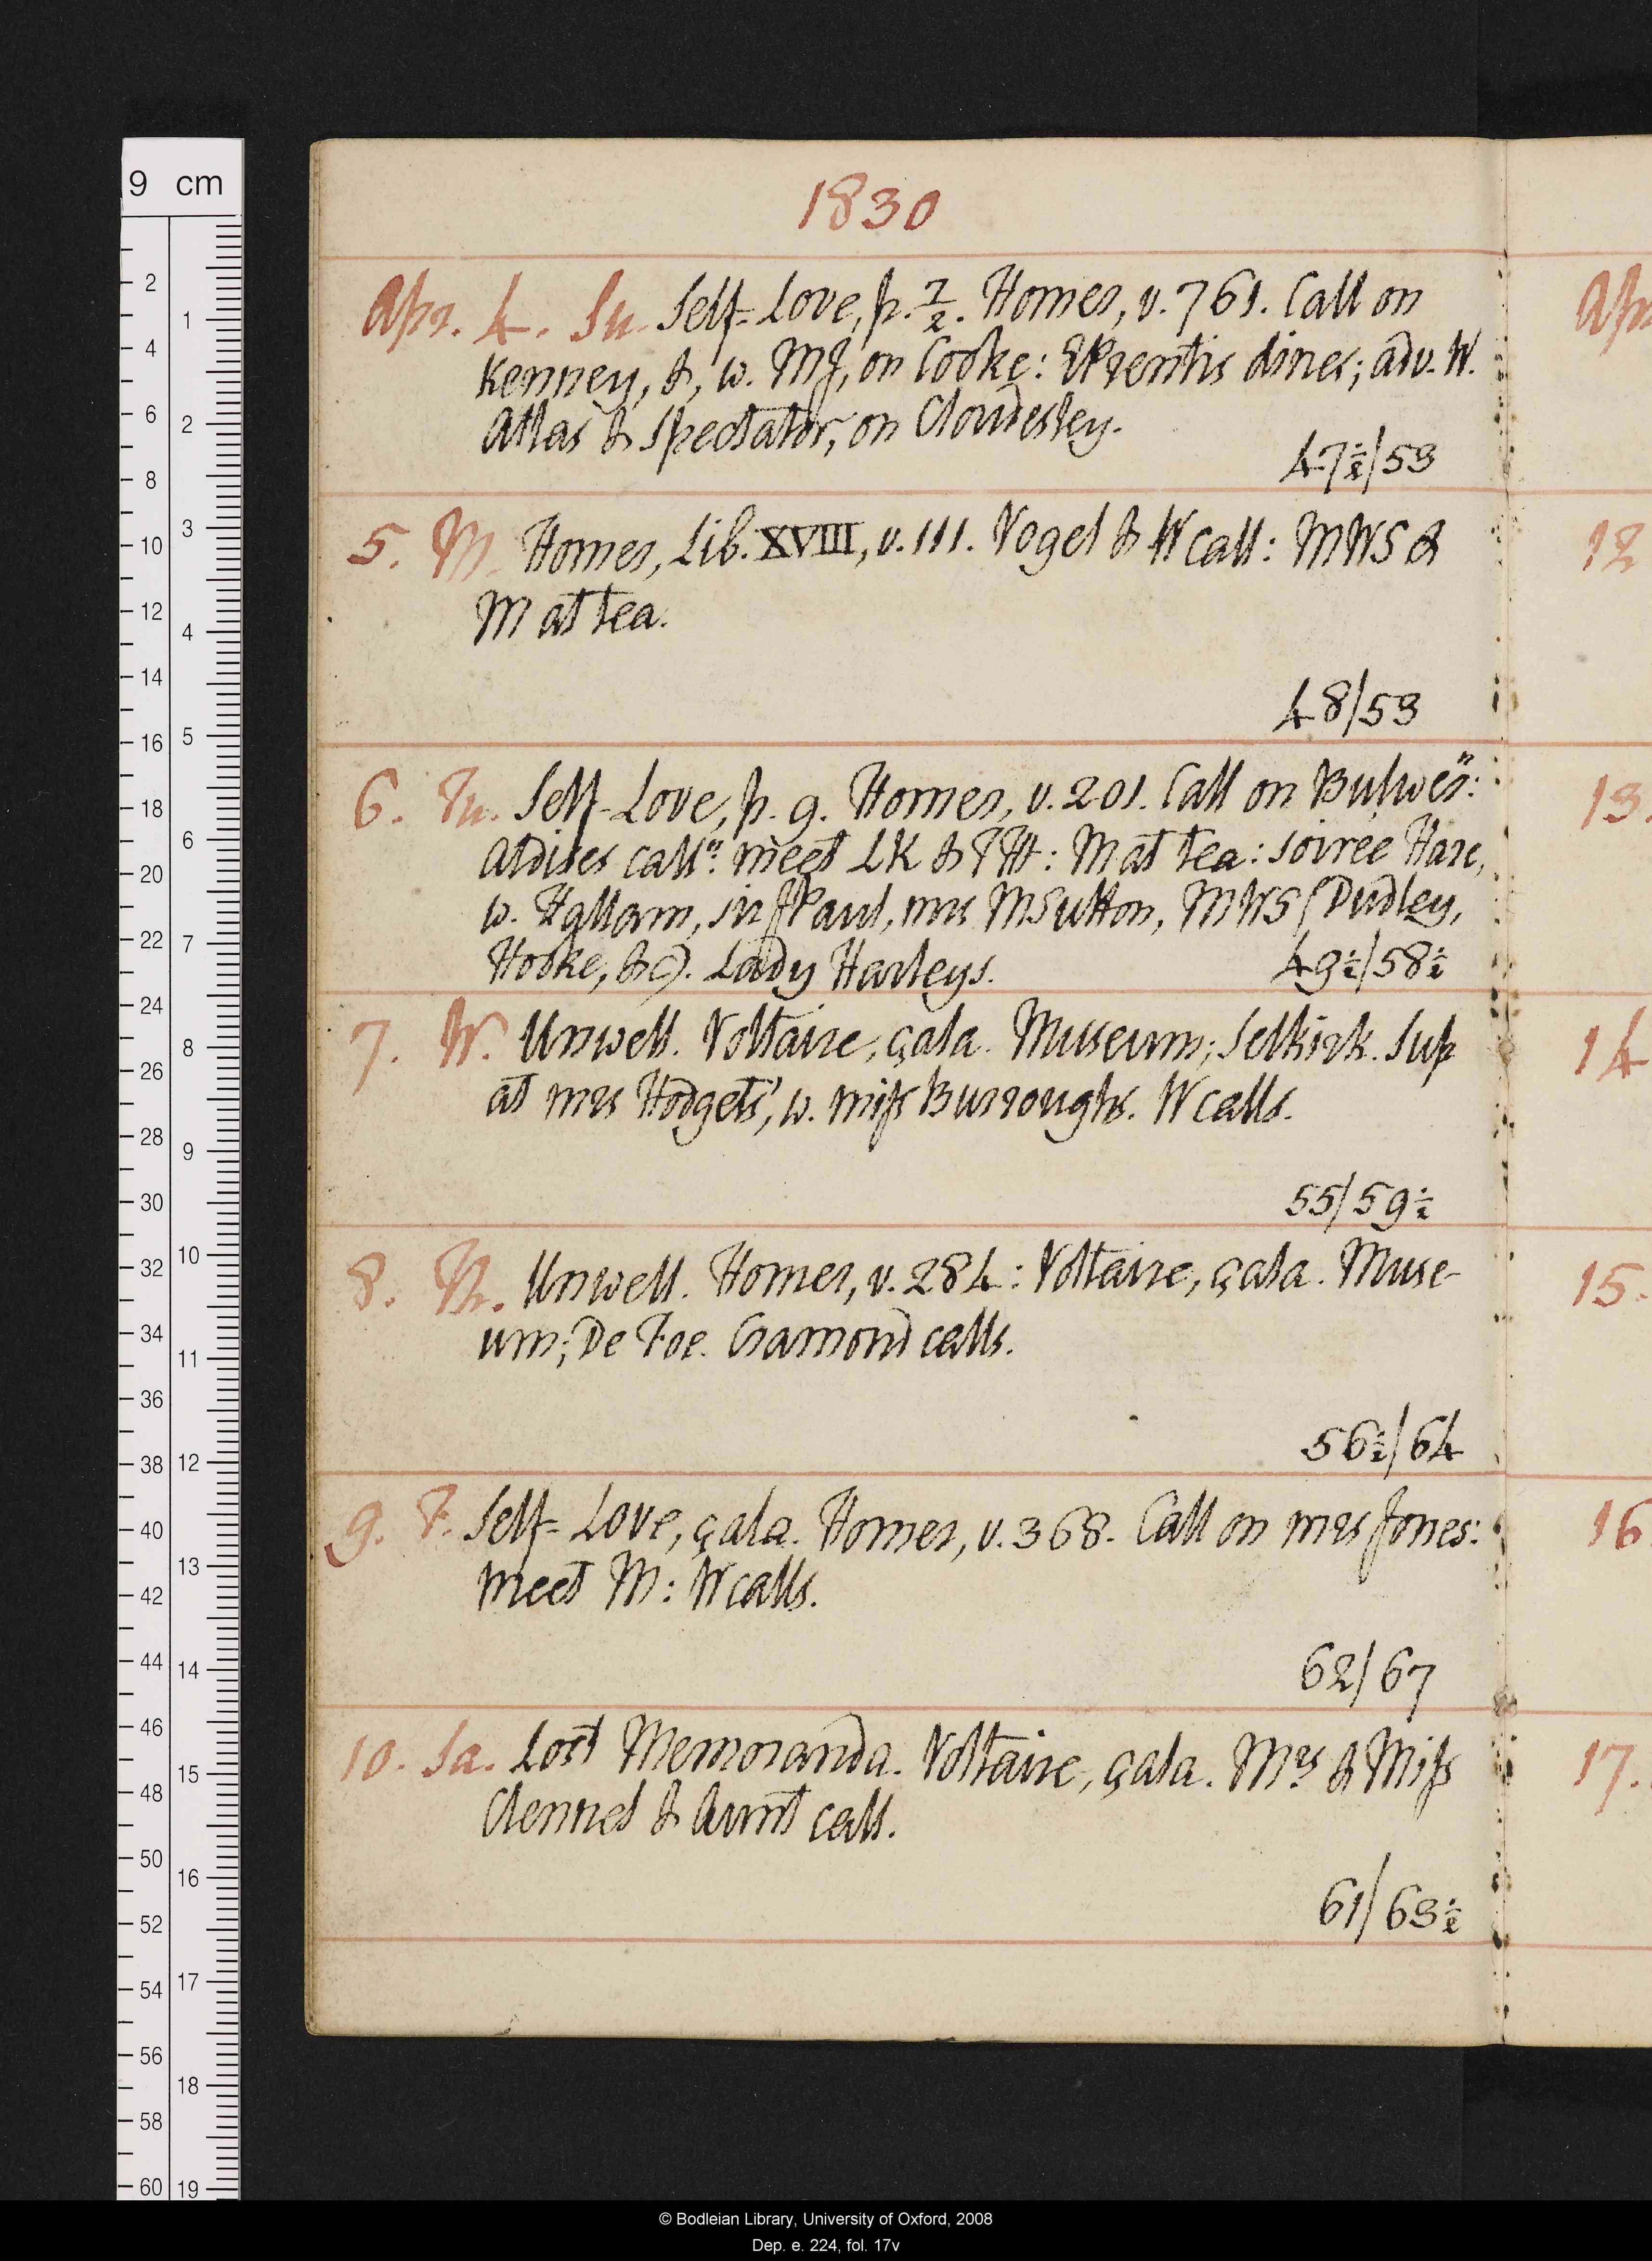 9 cm
1830
Apr. 4. Su. Self-Love, p. 7/2. Homer, v. 761. Call on
Kenney, &, w. MJ, on Cooke: EPrentis dines; adv. W.
Atlas & Spectator, on Cloudesley.
47½/53
5. M. Homer, Lib. XVIII, v. 111. Vogel & W call: MWS &
M at tea.
48/53
6. Tu. Self-Love, p. 9. Homer, v. 201. Call on Bulwer n:
Aldises call n: meet LK & TH: M at tea: soirée Hare,
w. Hallam, sir JPaul, mrs MSutton, MWS (Dudley,
Hooke, &c). Lady Harleys.
49½/58½
7. W. Unwell. Voltaire, çala. Museum; Selkirk. Sup
at mrs Hodgets', w. miss Burroughs. W calls.
55/59½
8. Th. Unwell. Homer, v. 284: Voltaire, çala. Muse-
um; De Foe. Gamond calls.
56½/64
9. F. Self-Love, çala. Homer, v. 368. Call on mrs Jones:
meet M: W calls.
62/67
10. Sa. Lost Memoranda. Voltaire, çala. Mrs & Miss
Clennel & Aunt call.
61/63½
Apr
12
13.
14
15.
16
17.
2
4
6
8
10
12
14
16
18
20
22
24
26
28
30
32
34
36
38
40
42
44
46
48
50
52
54
56
58
60
1
2
3
4
5
6
7
8
9
10
11
12
13
14
15
16
17
18
19
© Bodleian Library, University of Oxford, 2008
Dep. e. 224, fol. 17v